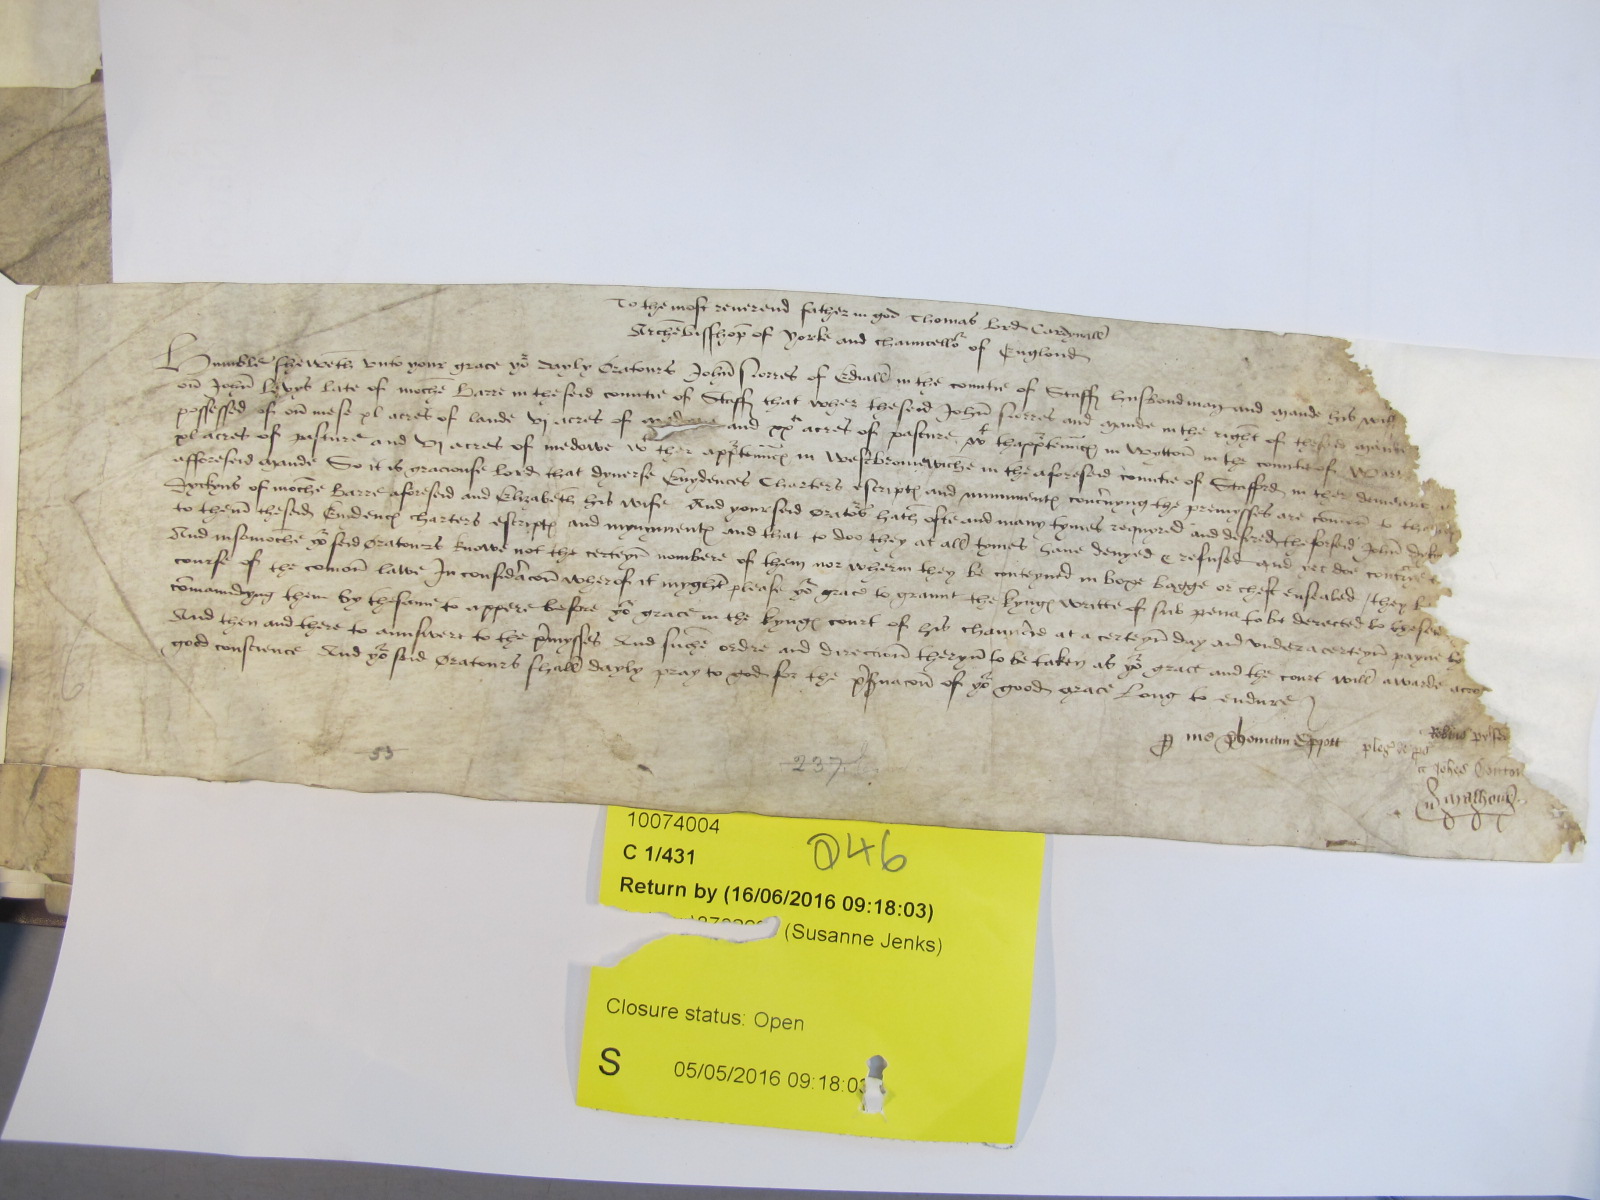 To the most reverend father in god Thomas lord Cardynall
Archebisshop of Yorke and chauncello^r of Englond
Humble sheweth vnto your grace yo^r dayly Oratours John Surres of Ediall in the countie of Staff husbondman and Maude his wif
on John Levys late of moche Barre in the seid countie of Staff that wher the seid John Surres and Maude in the right of the seid Maude
possessed of on mese xl acres of lande vi acres of medowe and xx^ti acres of pasture w^t thapp^rtenncs in Wytton in the countie of Warr
xl acres of pasture and vi acres of medowe w^t ther app^rtenncs in Westbromewiche in the aforeseid countie of Stafford in ther demeane
afforeseid Maude So it is graciouse lord that dyuerse Euydences Charters escriptes and mynumentes concernyng the premysses are comen to
Dyckyns of moche Barre aforeseid and Elizabeth his wife And your seid orato^rs hath ofte and many tymes requyred and desired the forseid John Dyk
to them the seid Euidences charters escriptes and mynymentes and that to doo they at all tymes haue denyed & refused and yet doe contrarie
And insomoche yo^r seid Oratours knowe not the certeyn nombere of them nor wherin they be conteyned in boxe bagge or chest ensealed they be
course of the comon lawe In consideracon wherof it myght please yo^r grace to graunt the kynges writte of sub pena to be deracted to the seid
comaundyng them by the same to appere before yo^r grace in the kynges court of his chauncrie at a certeyn day and vnder a certeyn payne
And then and there to aunswere to the premysses And suche ordre and direccion theryn to be taken as yo^r grace and the court will awarde acco
good conscience And yo^r seid Oratours shall dayly pray to god for the preseruacon of yo^r good grace long to endure
p me Thomam Eyott pleg de p^s
et Johes
55
237
10074004
C 1/431
246
Return by (16/06/2016 09:18:03)
(Susanne Jenks)
Closure status: Open
S 05/05/2016 09:18:03